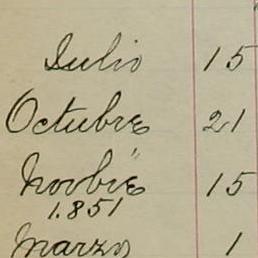 Julio 15
Octubre 21
Novbre " 15
1.851
Marzo 1